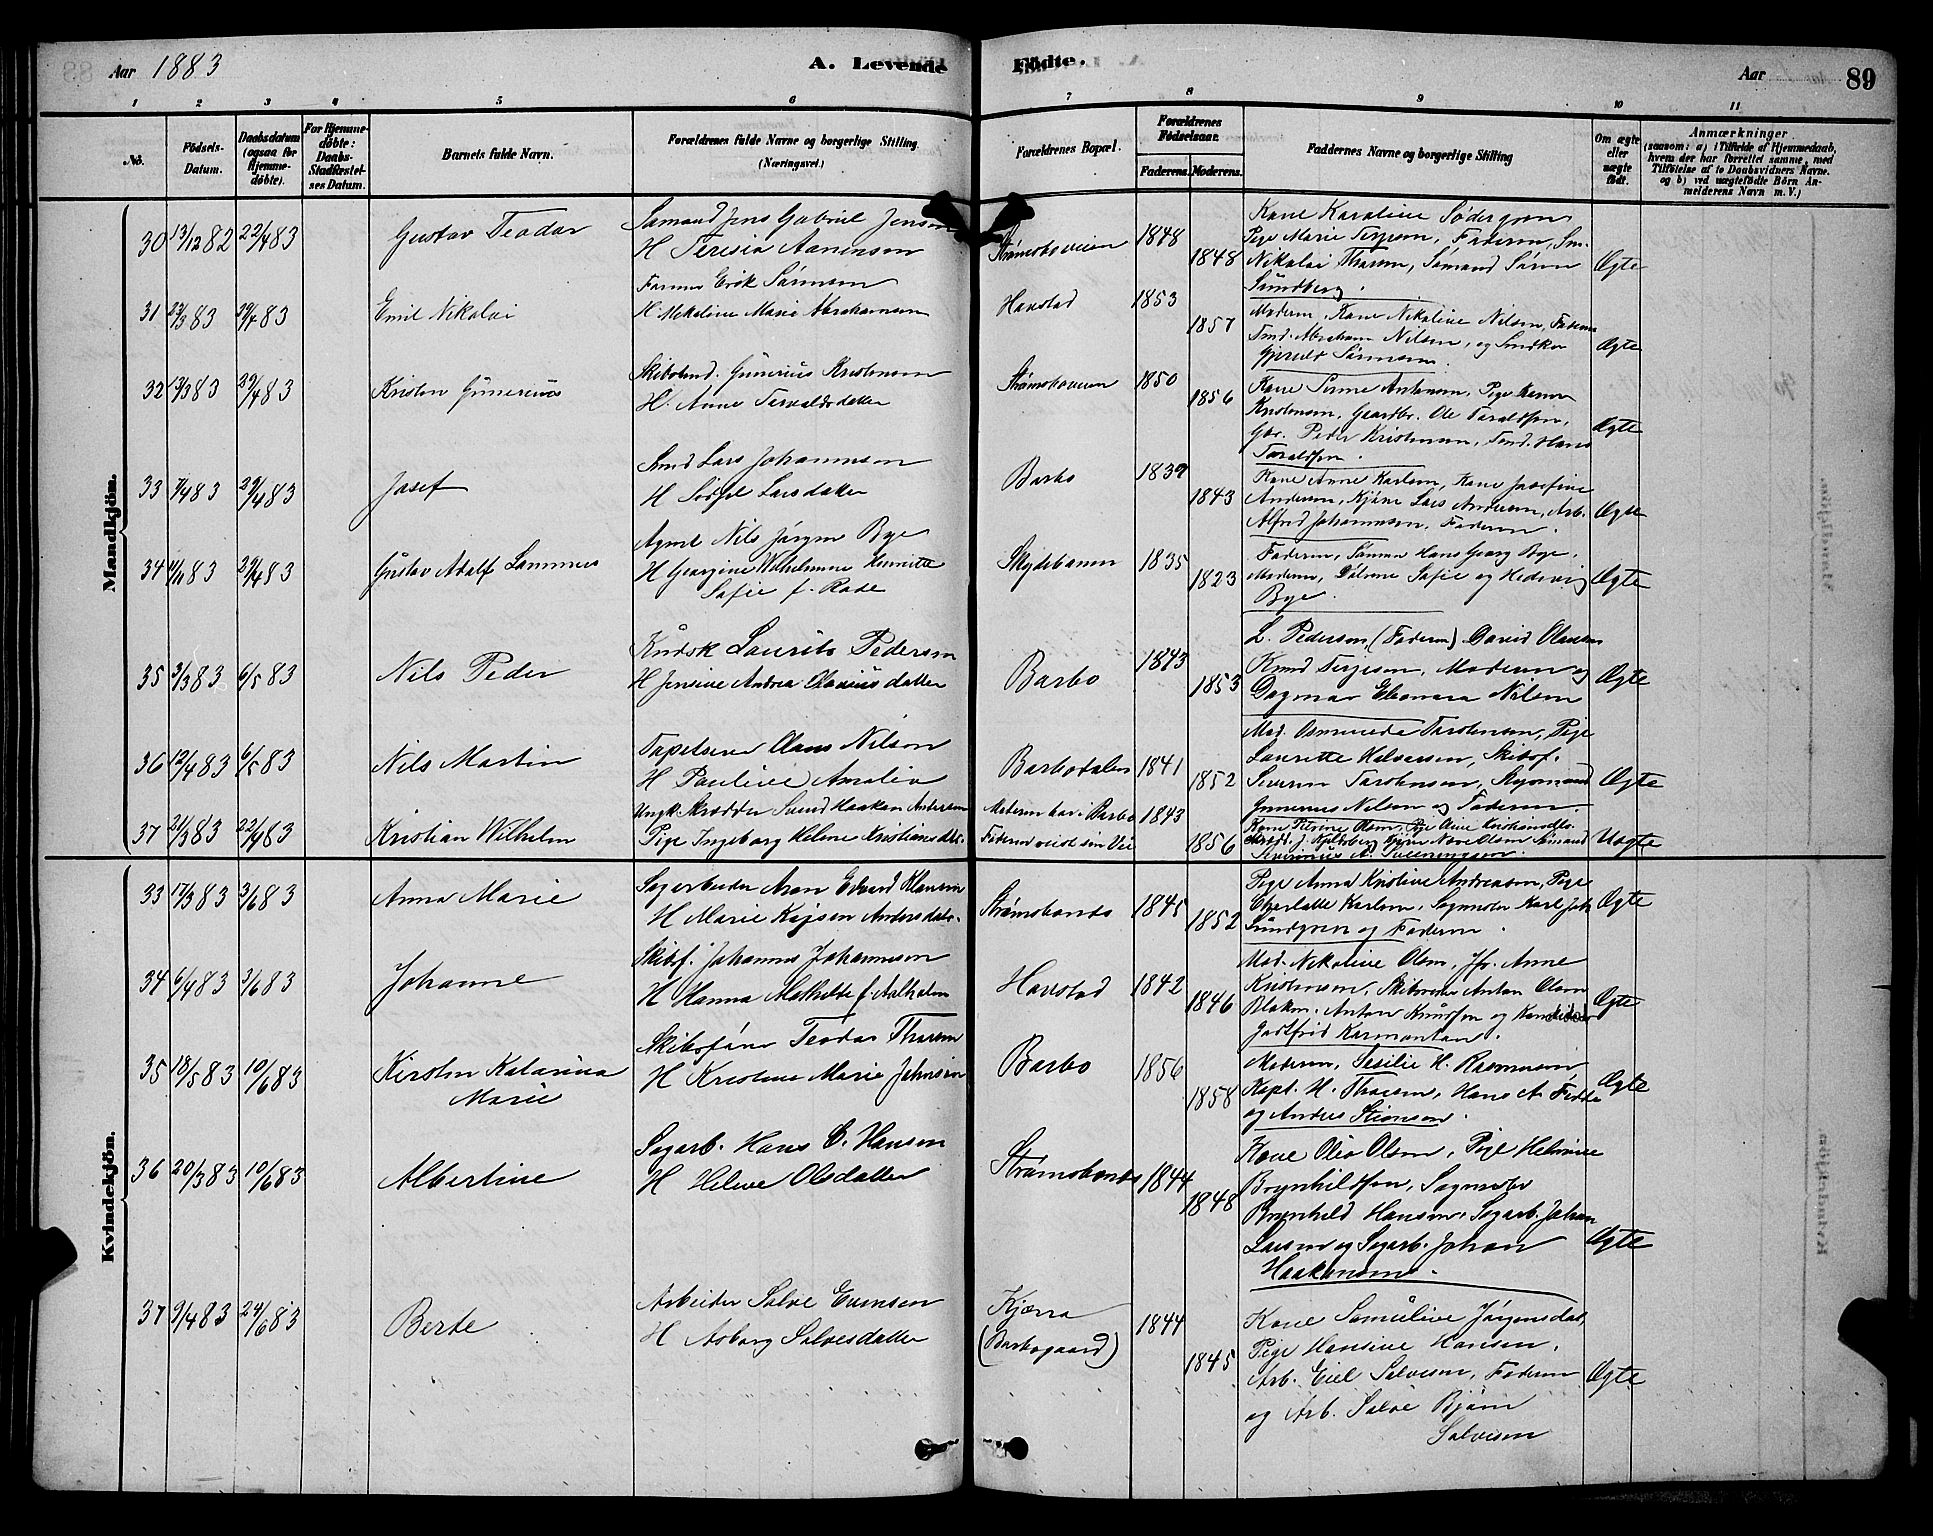 Aar 1883
A. Levende Fødte.
Aar
89
1 2 3 4 5 6 7 8 9 10 11
No.
Fødsels-Datum.
Daabsdatum (ogsaa for Hjemmedøbte).
For Hjemmedøbte: Daabs-Stadfæstelses Datum.
Barnets fulde Navn.
Forældrenes fulde Navne og borgerlige Stilling (Næringsvei.)
Forældrenes Bopæl.
Forældrenes Fødselsaar.
Faderens. Moderens.
Faddernes Navne og borgerlige Stilling
Om ægte eller uægte født.
Anmærkninger
(saasom: a) i Tilfælde af Hjemmedaab, hvem der har forrettet samme, med Tilføielse af to Daabsvidners Navne. og b) ved uægtefødte Børn Anmelderens Navn m. V.)
Mandkjön.
30 13/12 82 22/4 83 Gustav Teodor
Sømand Jens Gabriel Jensen
H Teresia Aanensen
Strømsboveien 1848 1848
Kone Karoline Södergren
Pige Marie Terjesen, Faderen, Sm.
Nikolai Thorsen, Sømand Søren
Sundberg.
Ægte
31 83 29/4 83 Emil Nikolai
Farmer Erik Sørensen
H. Nikoline Marie Abrahamsen
Havstad 1853 1857
Moderen, Kone Nikoline Nilsen, Faderen
Tmd. Abraham Nilsen, og Smdkar
Sørensen.
Ægte
32 83 29/4 83 Kristen Gunerius
Skibstmd. Gunerius Kristensen
H. Anne Tarvaldsdatter
Strømsboveien 1850 1856
Kone Antonsen, Pige Karen
Kristensen, Gaardbr. Ole Taraldsen,
Gbr. Peder Kristensen, Tmd. Hans
Taraldsen.
Ægte
33 7/4 83 29/4 83 Josef
Smd Lars Johannesen
H Larsdatter
Barbo 1839 1843
Kone Anne Karlsen, Kone Josefine
Andersen, Lars Andersen, Arb.
Alfred Johannesen, Faderen.
Ægte
34 83 29/4 83 Gustav Adolf Lammers
Agent Nils Jörgen Bye
H Georgine Wilhelmine Henriette
Sofie f. Rode
Skydebanen 1835 1823
Faderen, Sønnen Hans Georg Bye.
Moderen, Døtrene Sofie og Hedevig
Bye.
Ægte
35 3/3 83 6/5 83 Nils Peder
Kudsk Laurits Pedersen
H Jensine Andrea Olausdatter
Barbo 1843 1853
L. Pedersen, (Faderen) David Olausen
Knud Terjesen, Moderen og
Dagmar Eleonora Nilsen
Ægte
36 12/4 83 6/5 83 Nils Martin
Tapetserer Olaus Nilsen
H Pauline Amalia
Barbodalen 1841 1852
Mad. Torstensen, Pige
Laurette Halvorsen, Skibsf.
Severin Torstensen, Styrmand
Gunerius Nilsen og Faderen.
Ægte
37 21/3 83 22/4 83 Kristian Wilhelm
Ungk. Skrædder Svend Haakon Andersen
Pige Ingeborg Helene Kristiansdtr.
Moderen bor i Barbo 1843
Faderen reist sin Vei 1856
Kone Olsen, Pige Oline Kristiansdtr.
Skrædd. J. Olsen Sømand
Uægte
Kvindekjön.
33 17/3 83 3/6 83 Anna Marie
Sagarbeider Aron Edvard Klausen
H Marie Kajsen Andersdatr.
Strømsbonds 1845 1852
Pige Anna Kristine Andreasen, Pige
Charlotte Karlsen, Sagmester Karl Joh
Sundgren og Faderen.
Ægte
34 6/4 83 3/6 83 Johanne
Skibsf. Johannes Johannesen
H Hanna Mathilde f. Aalholm
Havstad 1842 1846
Mad. Nikoline Olsen, Jfr. Anne
Kristensen, Skibsreder Anton Olsen
Anton Knudsen og Kandidat
Gottfrid
Ægte
35 18/5 83 10/6 83 Kirsten Katarina
Marie
Skibsfører Teodor Thorsen
H Kristine Marie Johnsen
Barbo 1856 1858
Moderen, Sesilie H. Rasmussen
Kapt. H. Thorsen, Hans A. Fedde
og Anders
Ægte
36 20/3 83 10/6 83 Albertine
Sagarb. Hans C. Hansen
H Helene Olsdatter
Strømsbonds 1844 1848
Kone Olea Olsen, Pige Helmine
Brynhildsen, Sagmester
Brynhild Hansen, Sagarb. Johan
Larsen og Sagarb. Johan
Haakonsen.
Ægte
37 9/4 83 24/6 83 Berte
Arbeider Salve Evensen
H Asborg Salvesdatter
Kjærra
(Barbogaard) 1844 1845
Kone Samuline Jørgensdat,
Pige Hansine Hansen,
Arb. Eiel Salvesen, Faderen
og Arb. Salve Bjørn
Salvesen
Ægte